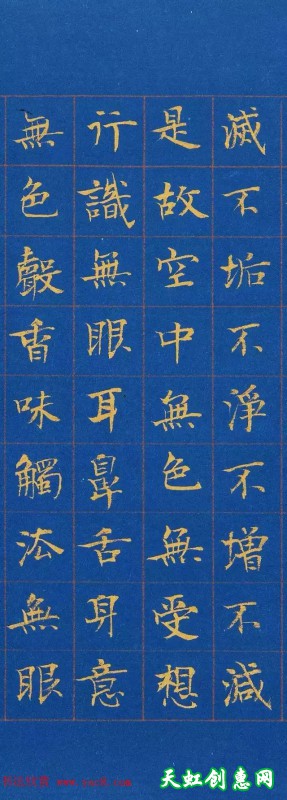 滅不垢不淨不增不減
是故空中無色無受想
行識無眼耳鼻舌身意
無色聲香味觸法無眼
天虹创意网